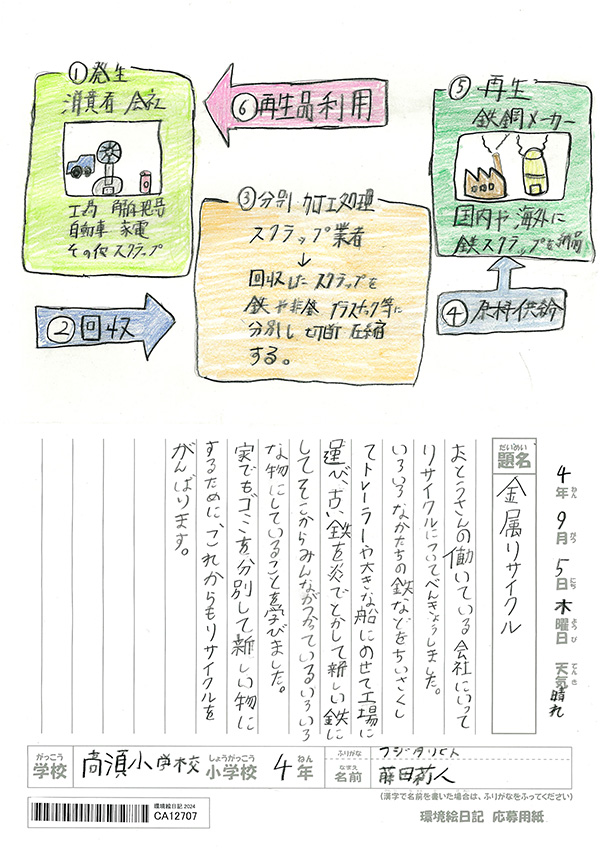 ①発生
消費者 会社
工場 解体現場
自動車 家電
その他 スクラップ
②回収
③分別 加工処理
スクラップ業者
↓
回収したスクラップを
鉄や非金 プラスチック等に
分別し 切断 圧縮
する。
④原料供給
⑤再生
鉄鋼メーカー
国内や海外に
鉄スクラップを納品
⑥再生品利用
4年 9月 5日 木曜日 天気 晴れ
ねん がつ にち ようび てんき
だいめい
題名
金属リサイクル
おとうさんの働いている会社にいって
リサイクルについてべんきょうしました。
いろいろなかたちの鉄などをちいさくし
てトレーラーや大きな船にのせて工場に
運び、古い鉄を炎でとかして新しい鉄に
してそこからみんながつかっているいろいろ
な物にしていることを学びました。
家でもゴミを分別して新しい物に
するために、これからもリサイクルを
がんばります。
がっこう
学校
高須小学校
しょうがっこう
小学校
4
ねん
年
ふりがな
なまえ
名前
藤田莉人
(漢字で名前を書いた場合は、ふりがなをふってください)
環境絵日記 2024
CA12707
環境絵日記 応募用紙